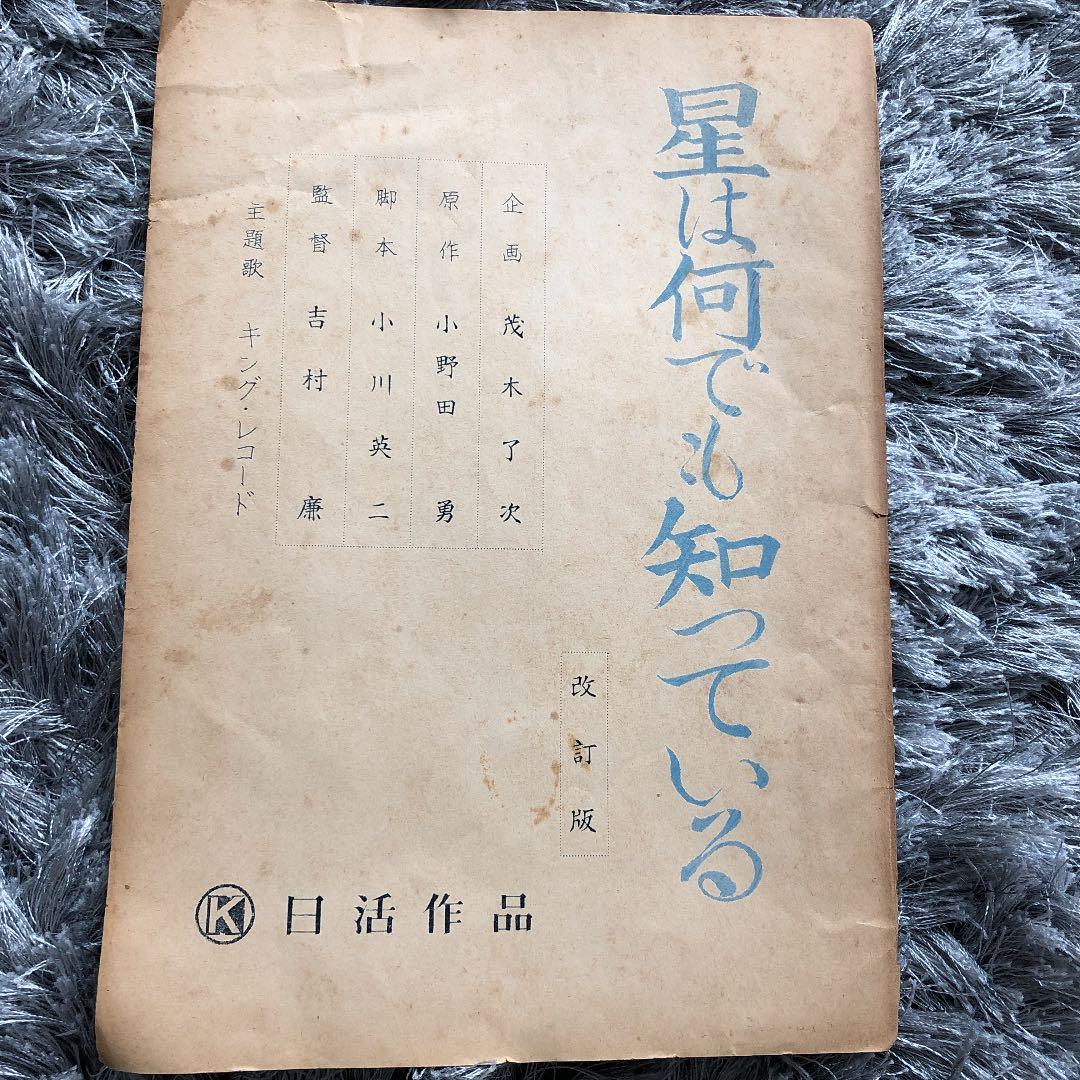 星は何でも知っている
改訂版
企画 茂木了次
原作 小野田勇
脚本 小川英二
監督 吉村廉
主題歌 キング・レコード
K 日活作品